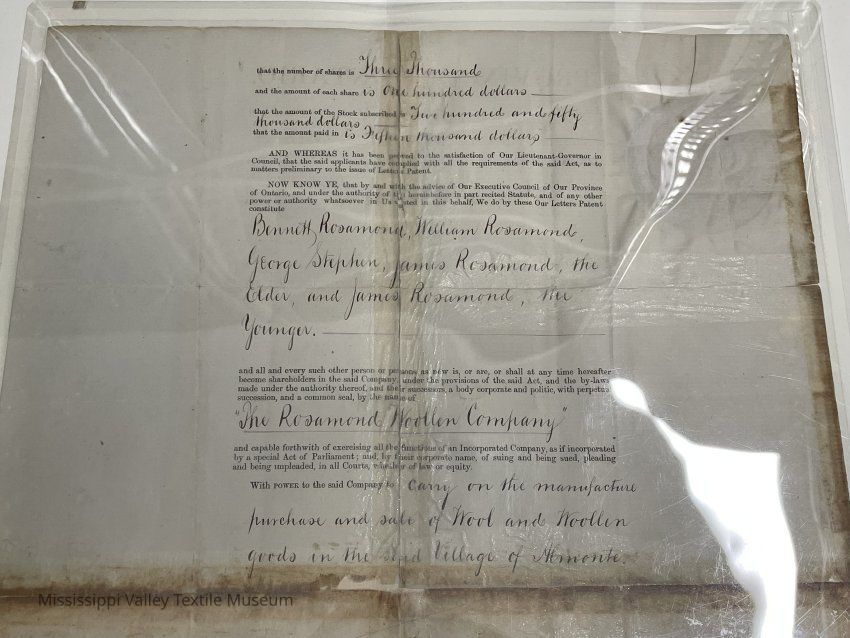 that the number of shares is Three Thousand
and the amount of each share is One hundred dollars
that the amount of the Stock subscribed is Two hundred and fifty
thousand dollars
that the amount paid in is Fifteen thousand dollars
AND WHEREAS it has been proved to the satisfaction of Our Lieutenant-Governor in
Council, that the said applicants have complied with all the requirements of the said Act, as to
matters preliminary to the issue of Letters Patent.
NOW KNOW YE, that by and with the advice of Our Executive Council of Our Province
of Ontario, and under the authority of the hereinbefore in part recited Statute, and of any other
power or authority whatsoever in Us vested in this behalf, We do by these Our Letters Patent
constitute
Bennett Rosamond, William Rosamond,
George Stephen, James Rosamond, the
Elder, and James Rosamond, the
Younger.
and all and every such other person or persons as now is, or are, or shall at any time hereafter
become shareholders in the said Company, under the provisions of the said Act, and the by-laws
made under the authority thereof, and their successors, a body corporate and politic, with perpetual
succession, and a common seal, by the name of
"The Rosamond Woollen Company"
and capable forthwith of exercising all the functions of an Incorporated Company, as if incorporated
by a special Act of Parliament; and, by their corporate name, of suing and being sued, pleading
and being impleaded, in all Courts, whether of law or equity.
With POWER to the said Company to carry on the manufacture
purchase and sale of Wool and Woollen
goods in the said Village of Almonte.
Mississippi Valley Textile Museum